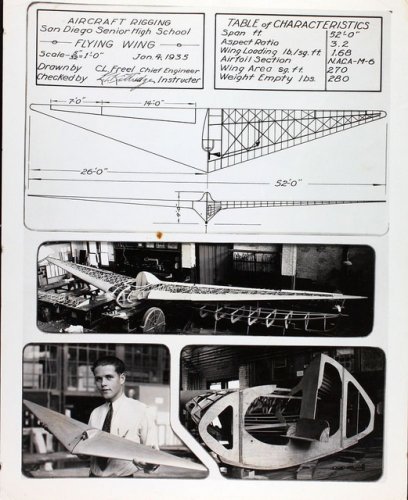 AIRCRAFT RIGGING
San Diego Senior High School
— FLYING WING —
Jan. 4, 1935
Drawn by CL Freel Chief Engineer
Checked by Instructer
TABLE of CHARACTERISTICS
Span ft. 52'-0"
Aspect Ratio 3.2
Wing Loading lb./sq. ft. 1.68
Airfoil Section N.A.C.A-M-6
Wing Area sq. ft. 270
Weight Empty lbs. 280
7'-0" 14'-0"
26'-0"
52'-0"